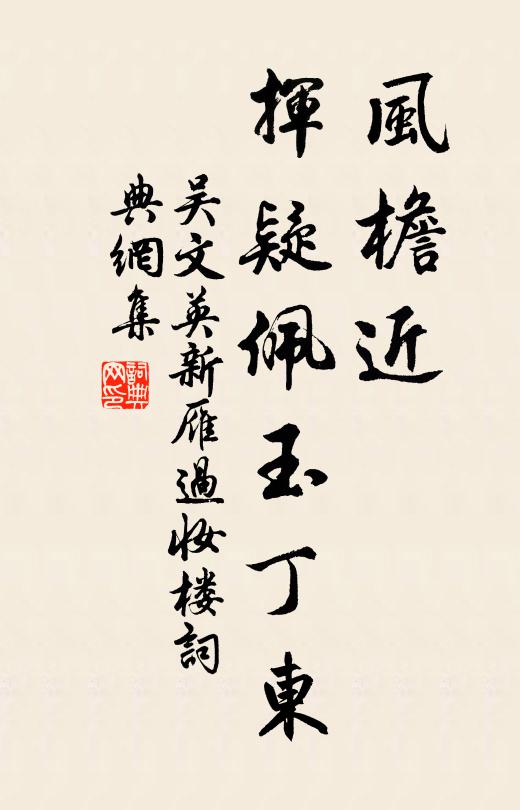 風檐近
揮疑佩玉丁東
吴文英新雁過妝楼詞
典網集
詞典網印